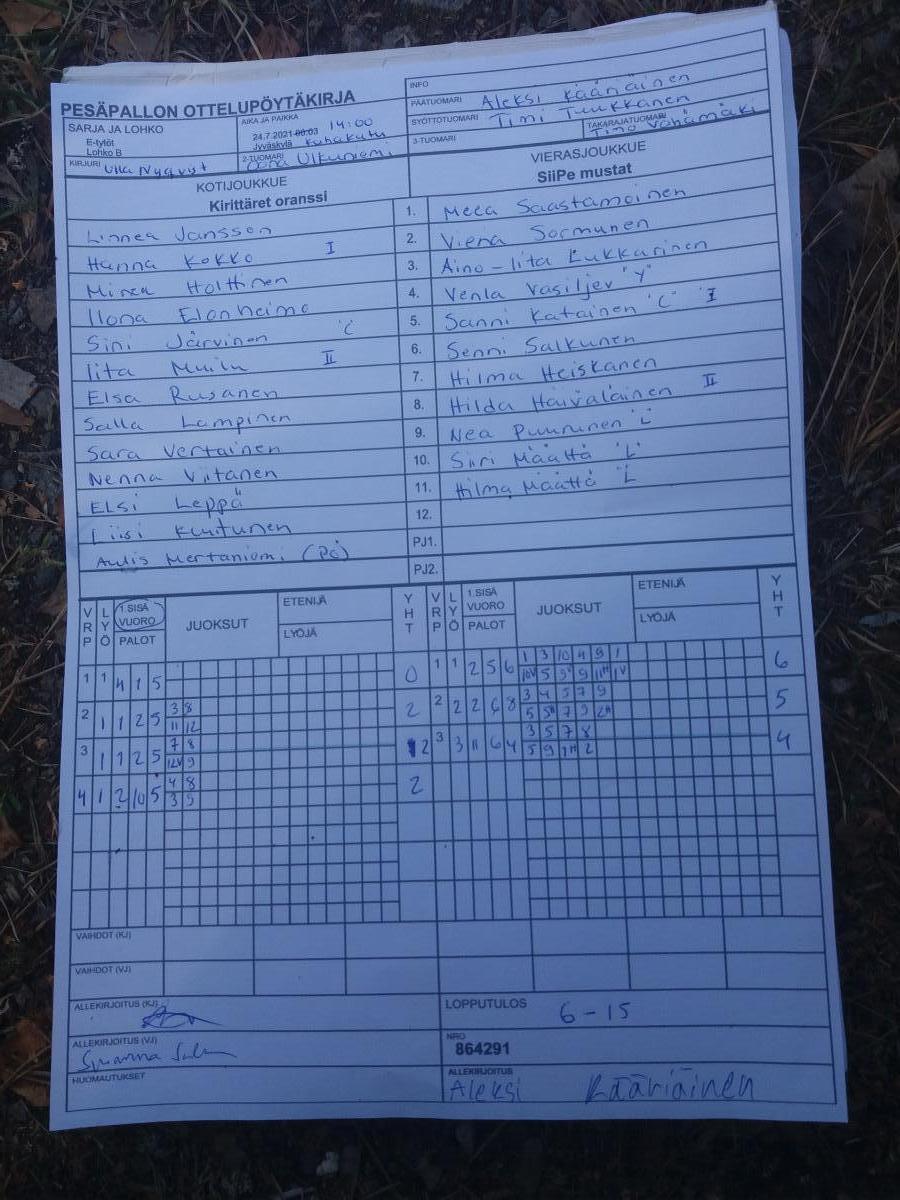 PESÄPALLON OTTELUPÖYTÄKIRJA
INFO
PÄÄTUOMARI Aleksi Kääriäinen
SYÖTTÖTUOMARI Timi Tuukkanen
3-TUOMARI TAKARAJATUOMARI Timo Vähämäki
SARJA JA LOHKO
E-tytöt
Lohko B
AIKA JA PAIKKA 14:00
24.7.2021 00:03
Jyväskylä Kuhakatu
KIRJURI Ulla Nyqvist
2-TUOMARI Ulkuniemi
KOTIJOUKKUE
Kirittäret oranssi
VIERASJOUKKUE
SiiPe mustat
Linnea Jansson 1. Meea Saastamoinen
Hanna Kokko I 2. Viena Sormunen
Minea Holttinen 3. Aino-Iita Lukkarinen
Ilona Elonheimo 4. Venla Vasiljev "Y"
Sini Järvinen "C 5. Sanni Katainen "C" I
Iita II 6. Senni Salkunen
Elsa Rusanen 7. Hilma Heiskanen
Salla Lampinen 8. Hilda Häiväläinen II
Sara Vertainen 9. Nea Puurunen "L"
Nenna Viitanen 10. Siiri Määttä "L"
Elsi Leppä 11. Hilma Määttä "L
Liisi Kuitunen 12.
Aulis Mertaniemi (PÖ) PJ1.
PJ2.
VRP LYÖ 1.SISÄ VUORO PALOT JUOKSUT ETENIJÄ LYÖJÄ YHT
VRP LYÖ 1.SISÄ VUORO PALOT JUOKSUT ETENIJÄ LYÖJÄ YHT
1 1 4 1 5 0
1 1 2 5 6 1 3 10 4 9 1 6
2 1 1 2 5 3 8 2
11 12
2 2 2 6 8 3 4 5 7 9 5
3 1 1 2 5 7 8 2
12V 9
3 3 11 6 4 3 5 7 8 4
5 9 1H 2
4 1 2 10 5 4 8 2
3 9
VAIHDOT (KJ)
VAIHDOT (VJ)
ALLEKIRJOITUS (KJ)
LOPPUTULOS 6-15
ALLEKIRJOITUS (VJ) Susanna
NRO
864291
HUOMAUTUKSET
ALLEKIRJOITUS
Aleksi Kääriäinen